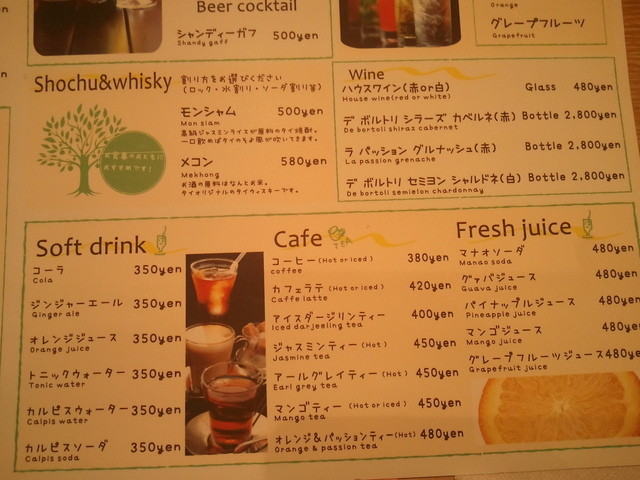 Beer cocktail
シャンディーガフ 500yen
Shandy gaff
Orange
グレープフルーツ
Grapefruit
Shochu&whisky 割り方をお選びください
(ロック・水割り・ソーダ割り等)
モンシャム 500yen
Mon siam
高級ジャスミンライスが原料のタイ焼酎。
一口飲めばタイのそよ風が吹いてきます。
メコン 580yen
Mekhong
お酒の原料はなんとお米。
タイオリジナルのタイウィスキーです。
お食事のおともに
おすすめです!
Wine
ハウスワイン(赤or白) Glass 480yen
House wine(red or white)
デ ボルトリ シラーズ カベルネ(赤) Bottle 2,800yen
De bortoli shiraz cabernet
ラ パッション グルナッシュ(赤) Bottle 2,800yen
La passion grenache
デ ボルトリ セミヨン シャルドネ(白) Bottle 2,800yen
De bortoli semielon chardonnay
Soft drink
コーラ 350yen
Cola
ジンジャーエール 350yen
Ginger ale
オレンジジュース 350yen
Orange juice
トニックウォーター 350yen
Tonic water
カルピスウォーター 350yen
Calpis water
カルピスソーダ 350yen
Calpis soda
Cafe TEA
コーヒー(Hot or Iced) 380yen
coffee
カフェラテ(Hot or iced) 420yen
Caffe latte
アイスダージリンティー 400yen
Iced darjeeling tea
ジャスミンティー(Hot) 450yen
Jasmine tea
アールグレイティー(Hot) 450yen
Earl grey tea
マンゴティー(Hot or iced) 450yen
Mango tea
オレンジ&パッションティー(Hot) 480yen
Orange & passion tea
Fresh juice
マナオソーダ 480yen
Manao soda
グァバジュース 480yen
Guava juice
パイナップルジュース 480yen
Pineapple juice
マンゴジュース 480yen
Mango juice
グレープフルーツジュース 480yen
Grapefruit juice